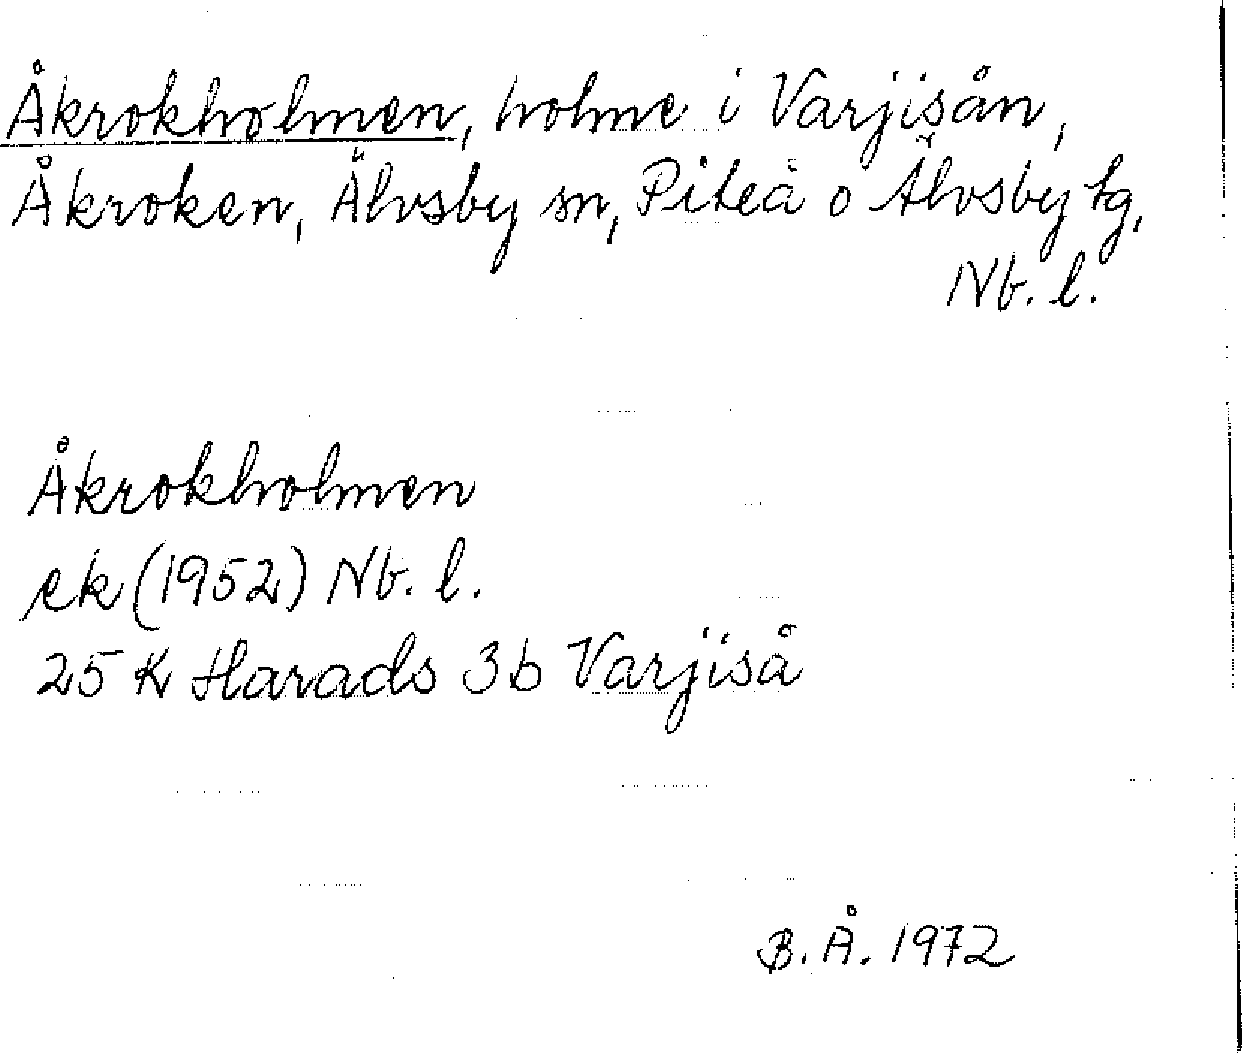 Åkrokholmen, holme i Varjisån,
Åkroken, Älvsby sn, Piteå o Älvsby tg,
Nb. l.
Åkrokholmen
ek (1952) Nb. l.
25 K Harads 3b Varjiså
B. Å. 1972